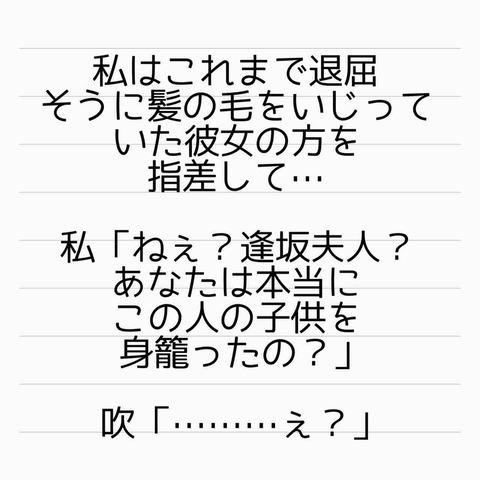 私はこれまで退屈
そうに髪の毛をいじって
いた彼女の方を
指差して…
私「ねぇ？逢坂夫人？
あなたは本当に
この人の子供を
身籠ったの？」
吹「………ぇ？」